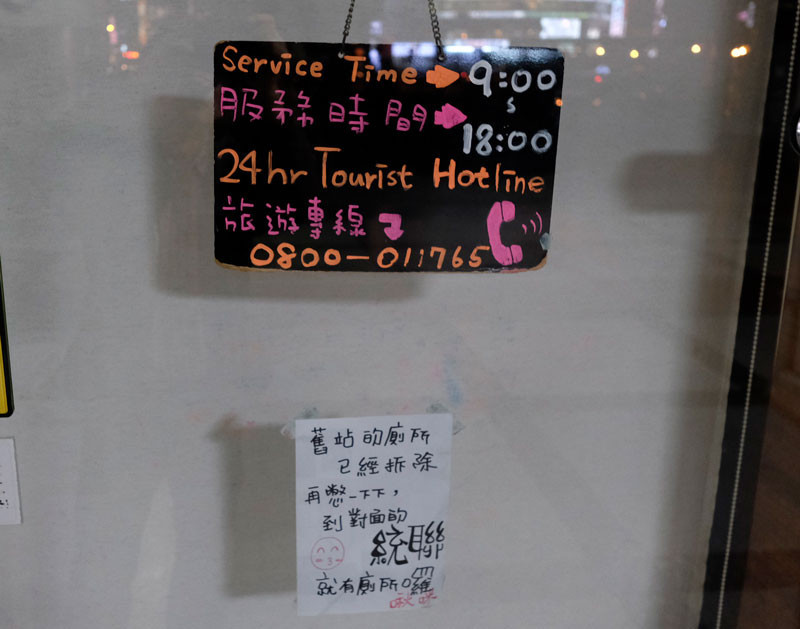 Service Time 9:00
服务時間 18:00
24hr Tourist Hotline
旅遊專線
0800-011765
舊站的廁所
已經拆除
再憋一下下，
到對面的
統聯
就有廁所囉
啾咪